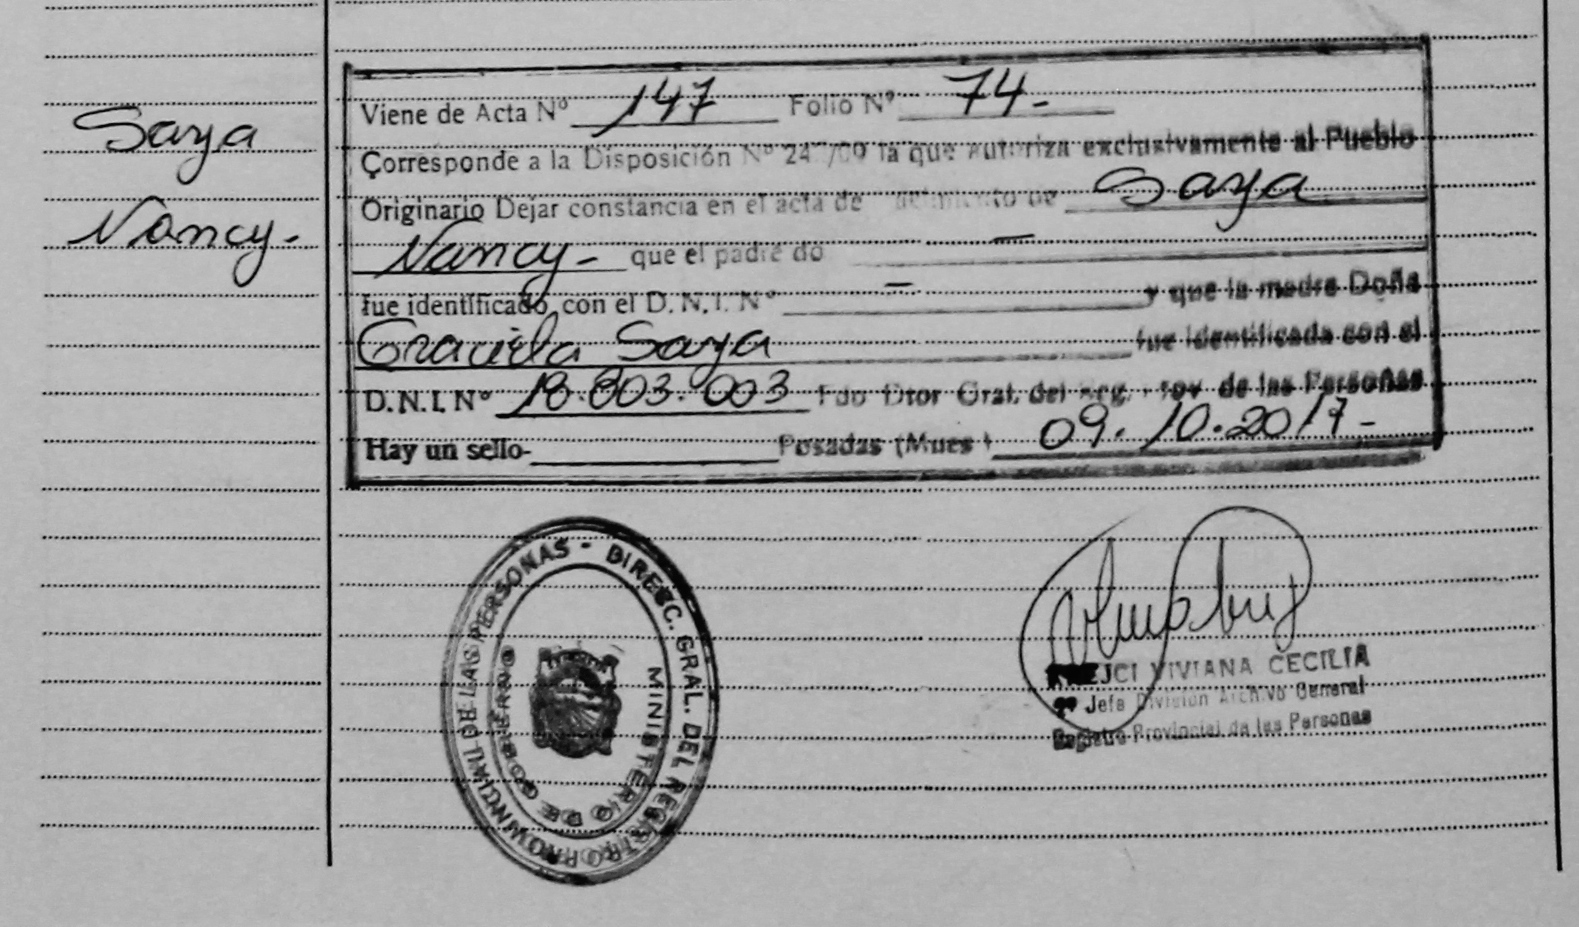 Saya
Nancy.-
Viene de Acta Nº 147 Folio Nº 74.-
Corresponde a la Disposición Nº 24 /09 la que autoriza exclusivamente al Pueblo
Originario Dejar constancia en el acta de nacimiento de Saya
Nancy.- que el padre do —
fue identificado con el D.N.I. Nº — y que la madre Doña
Graciela Saya fue identificada con el
D.N.I. Nº 18.803.003 Fdo Dtor Gral. del Reg. Prov de las Personas
Hay un sello- Posadas (Mnes ) 09.10.2017.-
DIREC. GRAL. DEL REGISTRO PROVINCIAL DE LAS PERSONAS -
MINISTERIO DE GOBIERNO
VIVIANA CECILIA
Jefe División Archivo General
Registro Provincial de las Personas